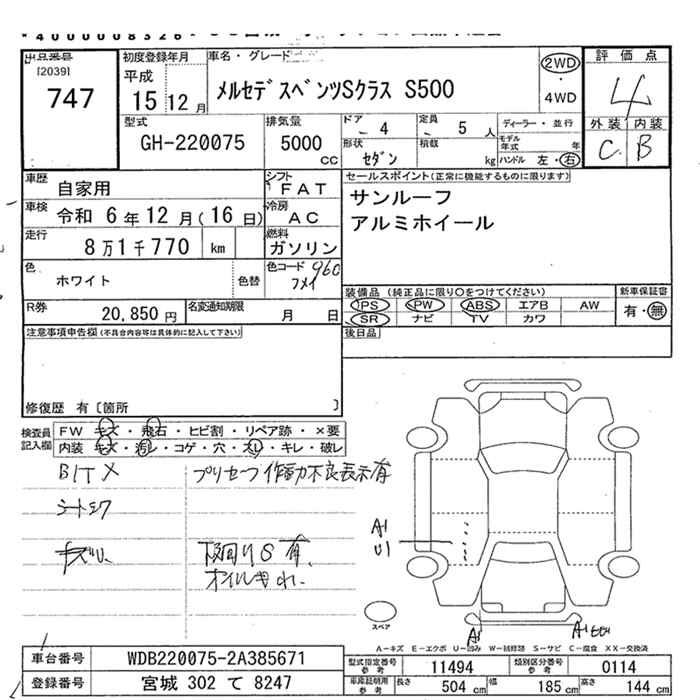 出品番号
[2039]
747
初度登録年月
平成
15年12月
車名・グレード
メルセデスベンツSクラス S500
2WD
・
4WD
評価点
4
外装 内装
C B
型式
GH-220075
排気量
5000
cc
ドア
4
定員
5人
ディーラー・並行
モデル年式 年
形状
セダン
積載
kg
ハンドル 左・右
車歴
自家用
シフト
FAT
車検
令和 6年12月(16日)
冷房
AC
走行
8万1千770 km
燃料
ガソリン
色
ホワイト
色替
色コード 960
フメイ
R券
20,850円
名変通知期限
月 日
セールスポイント(正常に機能するものに限ります)
サンルーフ
アルミホイール
装備品(純正品に限り○をつけてください)
PS PW ABS エアB AW
SR ナビ TV カワ
新車保証書
有・無
後日品
注意事項申告欄(不具合内容等は具体的に記入して下さい)
修復歴 有〔箇所 〕
検査員記入欄
FW キズ・飛石・ヒビ割・リペア跡・×要
内装 キズ・汚レ・コゲ・穴・スレ・キレ・破レ
BITX
シートシワ
プリセーフ作動不良表示有
下回りS有、
オイルもれ.
A1
U1
スペア
A1
A1
A-キズ E-エクボ U-凹み W-補修跡 S-サビ C-腐食 XX-交換済
車台番号
WDB220075-2A385671
登録番号
宮城 302 て 8247
型式指定番号
参考
11494
類別区分番号
参考
0114
車庫証明用
参考
長さ 504 cm
幅 185 cm
高さ 144 cm